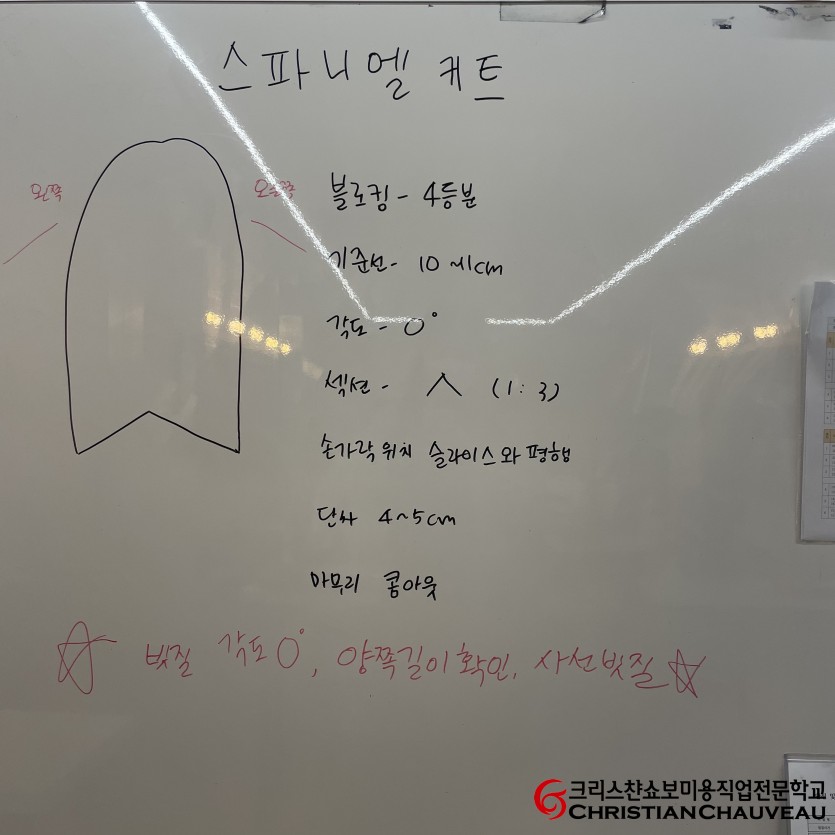 스파니엘 커트
왼쪽
오른쪽
블로킹 - 4등분
기준선 - 10~11cm
각도 - 0°
섹션 - ㅅ (1:3)
손가락위치 슬라이스와 평행
단차 4~5cm
마무리 콤아웃
☆ 빗질 각도 0°, 양쪽길이확인, 사선빗질 ☆
크리스챤쇼보미용직업전문학교
CHRISTIAN CHAUVEAU